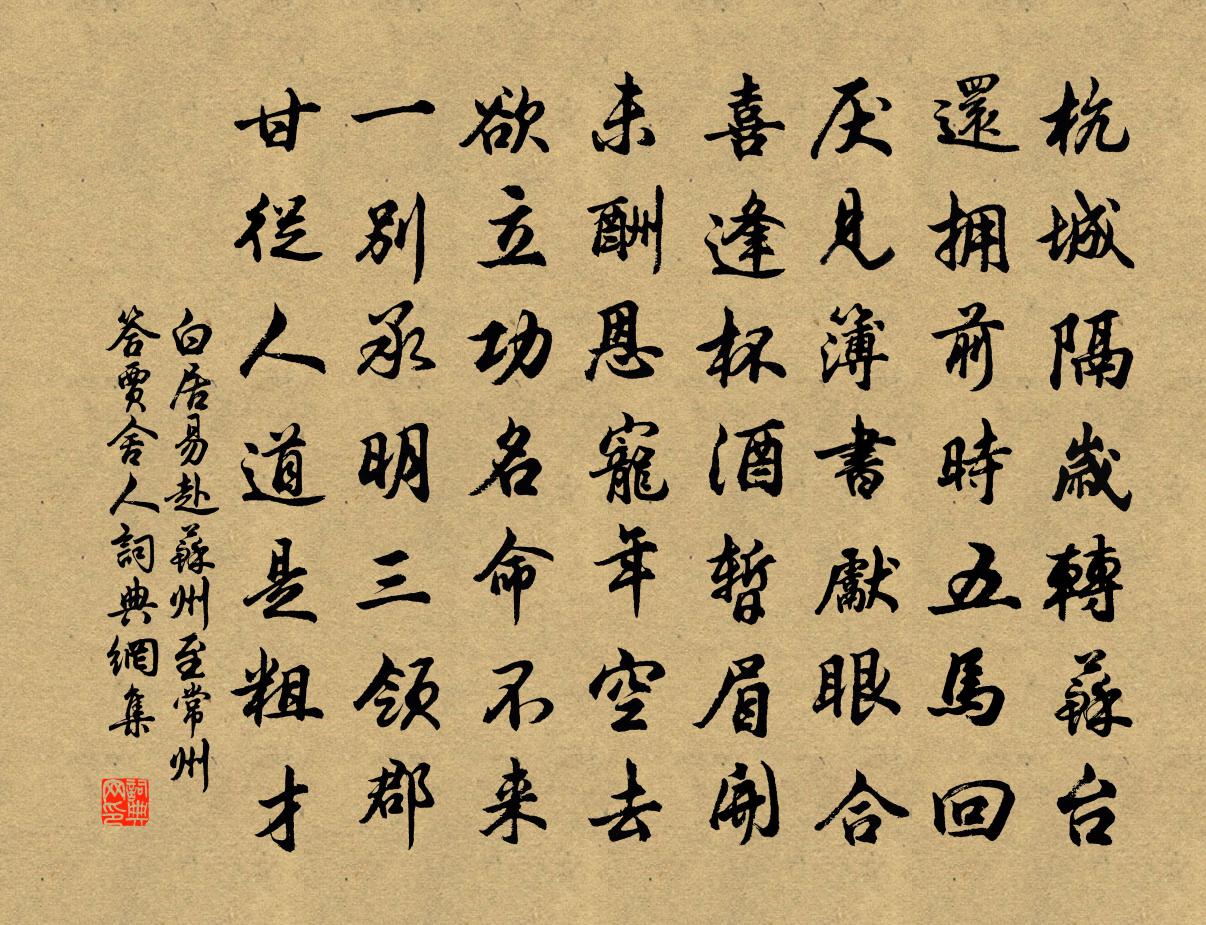 杭城隔歲轉蘇台
還拥前時五馬回
厌見簿書獻眼合
喜逢杯酒暫眉開
未酬恩寵年空去
欲立功名命不来
一别承明三領郡
甘從人道是粗才
白居易赴蘇州至常州
答賈舍人詞典網集
詞典
网印